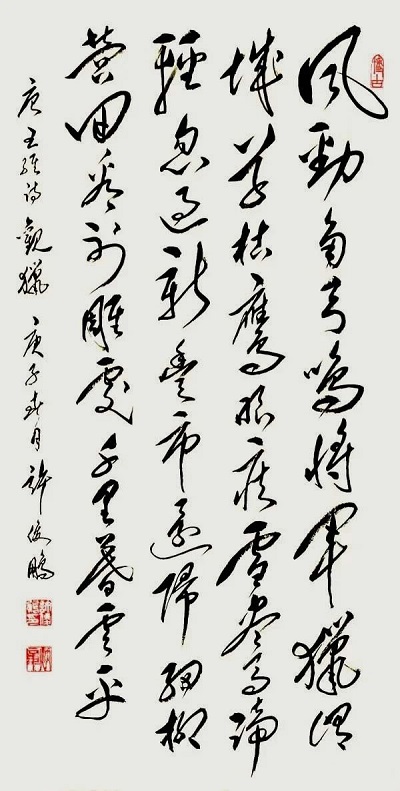 風勁角弓鳴將軍獵渭
城草枯鷹眼疾雪盡馬蹄
輕忽過新豐市還歸細柳
營回看射雕處千里暮云平
唐王維詩觀獵 庚子春月許俊鵬